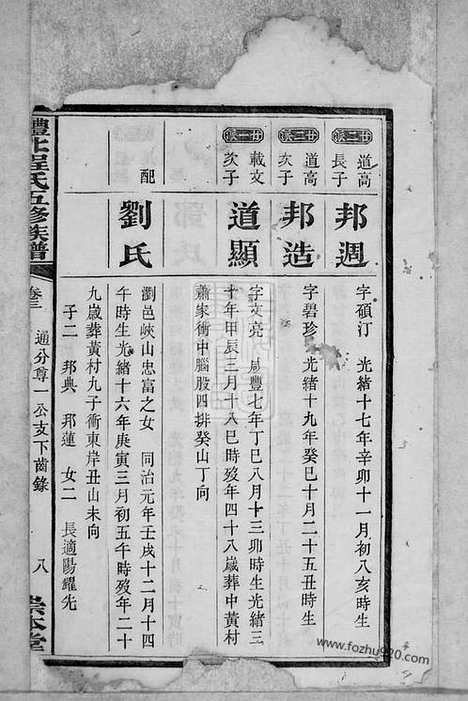 廿二派
道高
長子
邦週
字碩汀 光緒十七年辛卯十一月初八亥時生
廿二派
道高
次子
邦造
字碧珍 光緒十九年癸巳十月二十五丑時生
廿一派
載文
次子
道顯
字文亮 咸豐七年丁巳八月十三卯時生光緒三
十年甲辰三月十八巳時歿年四十八歲葬中黃村
蕭家衝中腦股四排癸山丁向
配
劉氏
瀏邑峽山忠富之女 同治元年壬戌十二月十四
午時生光緒十六年庚寅三月初五午時歿年二十
九歲葬黃村九子衝東岸丑山未向
子二 邦典 邦蓮 女二 長適陽耀先
醴北程氏五修族譜
卷三
通分尊一公支下齒錄
八
崇本堂
www.fozhu920.com